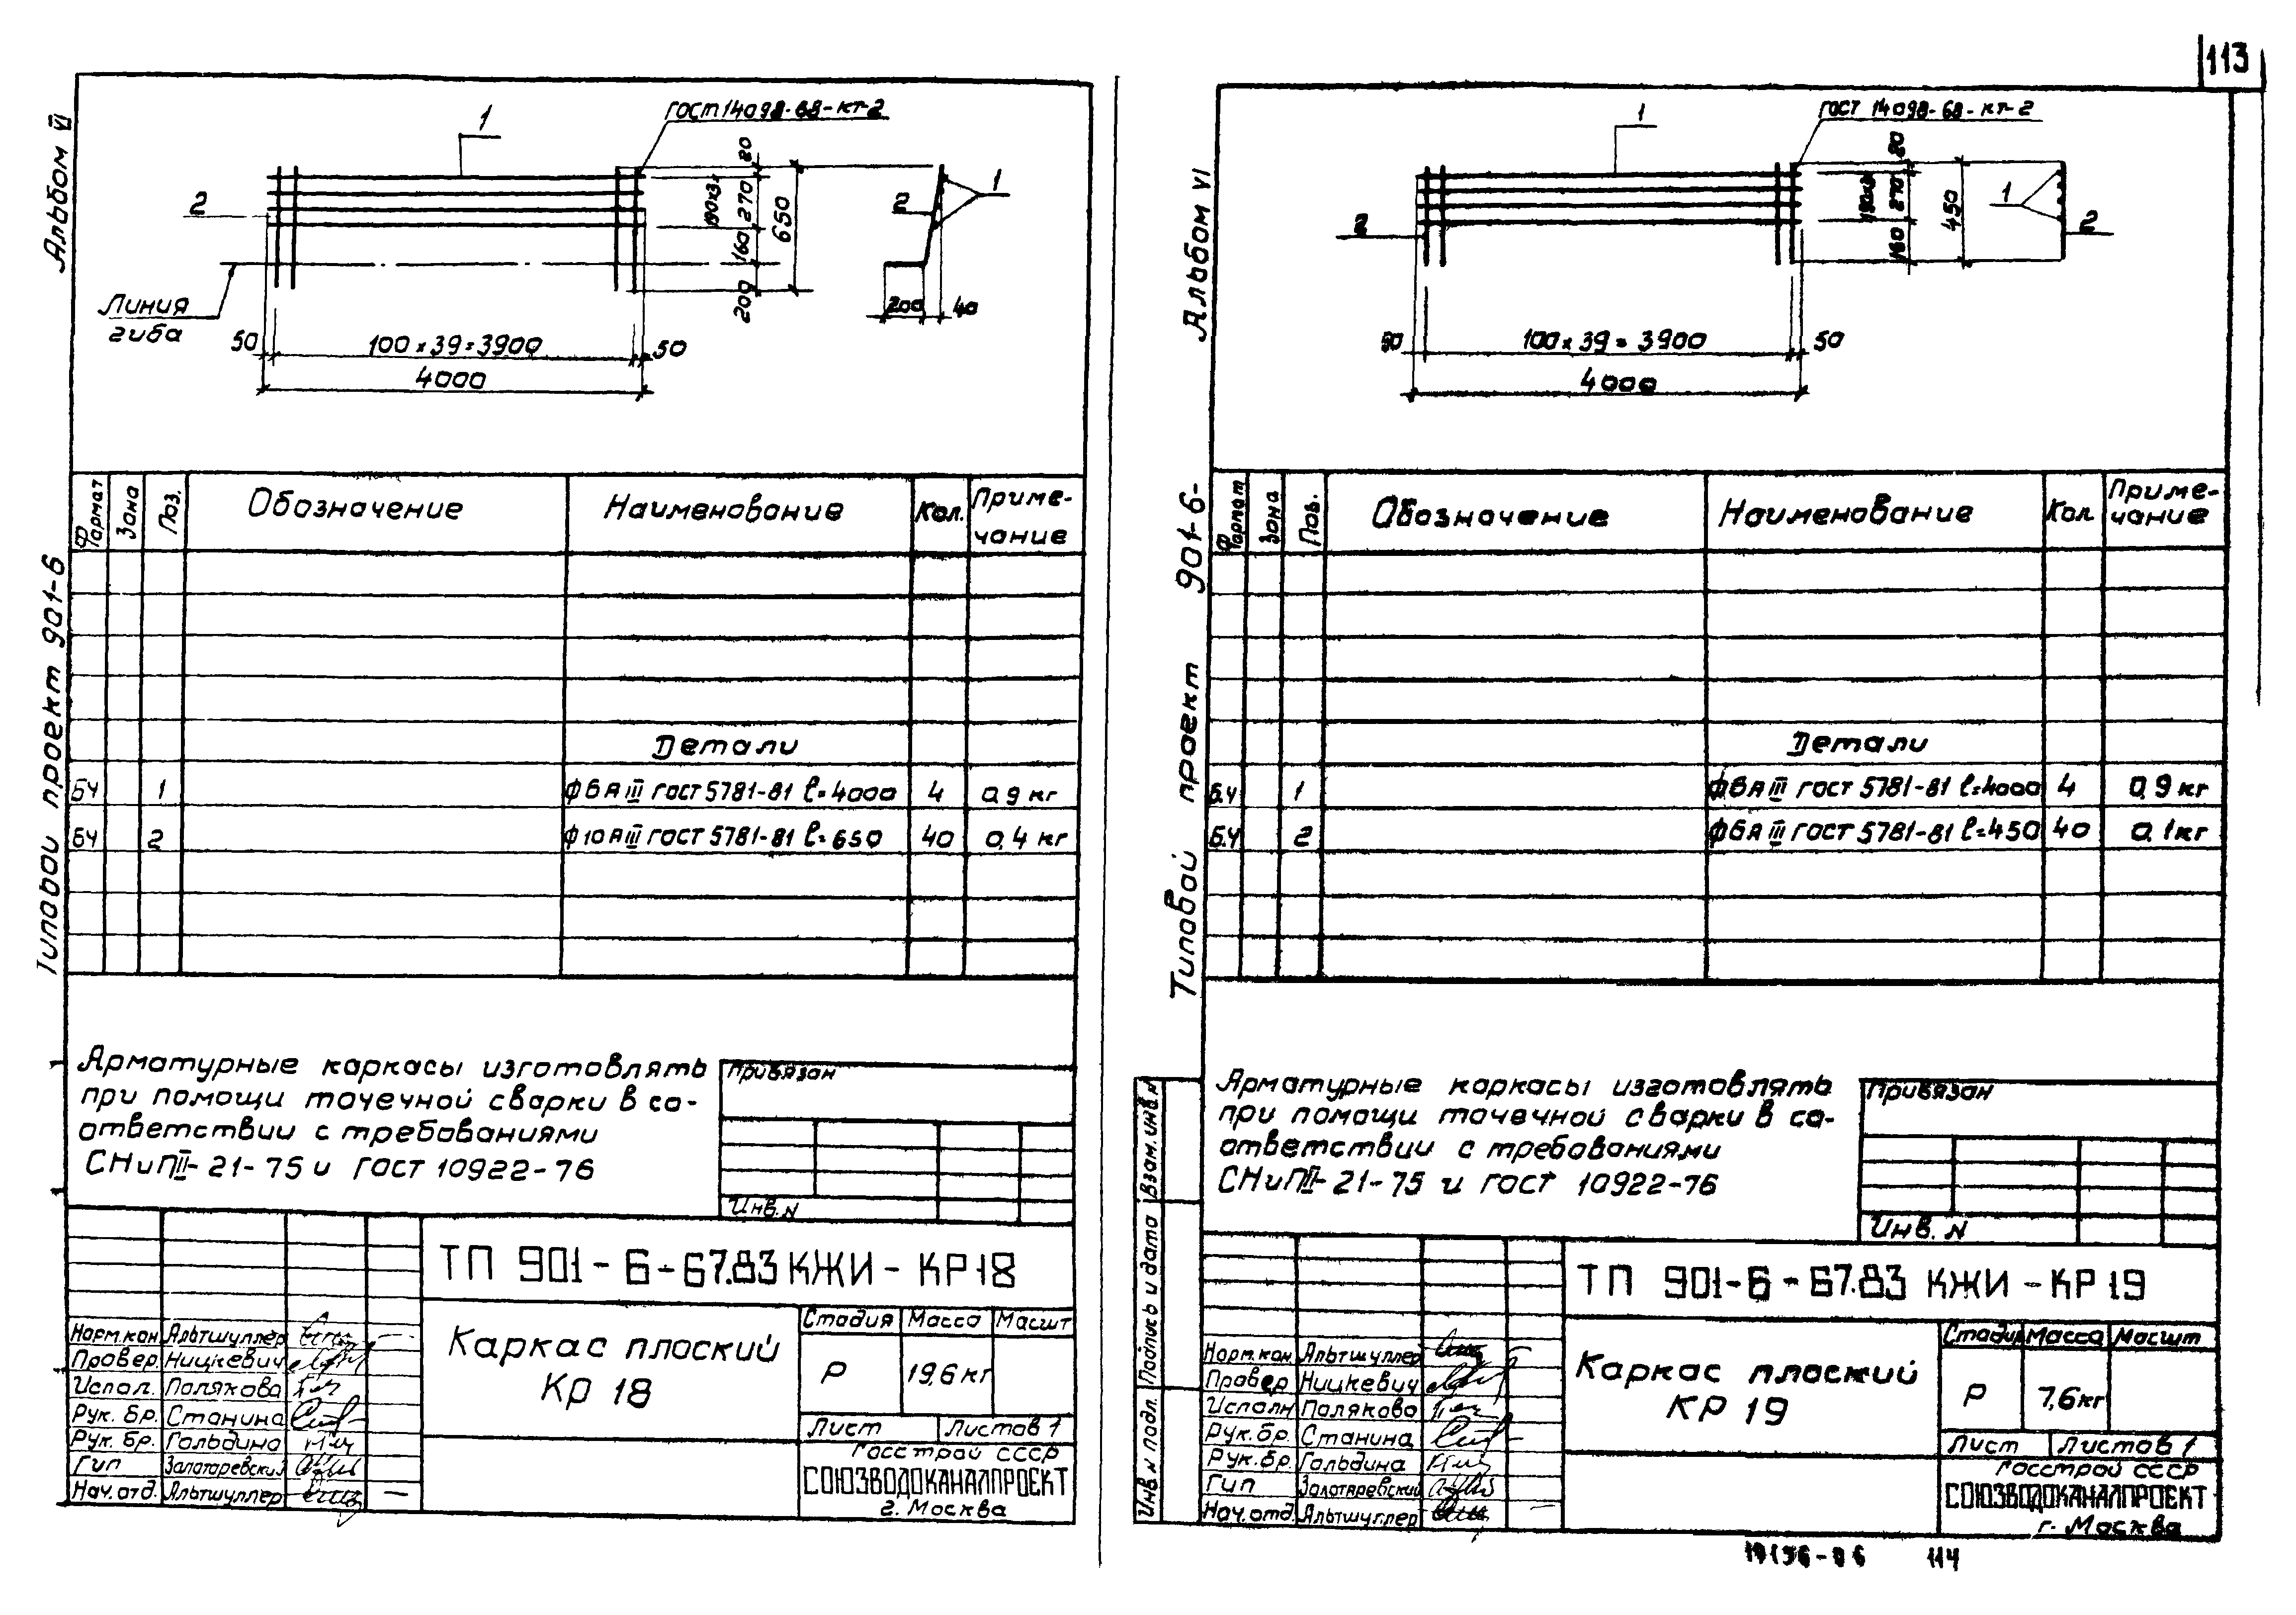 113
Альбом VI
Типовой проект 901-6
1
ГОСТ 14098-68-КТ-2
2
20
270
160
200
650
1
2
200
40
Линия
гиба
50
100 x 39 = 3900
50
4000
Формат
Зона
Поз.
Обозначение
Наименование
Кол.
Приме-
чание
Детали
БЧ 1 Ф6АIII ГОСТ 5781-81 l=4000 4 0,9 кг
БЧ 2 Ф10АIII ГОСТ 5781-81 l=650 40 0,4 кг
Арматурные каркасы изготовлять
при помощи точечной сварки в со-
ответствии с требованиями
СНиПII-21-75 и ГОСТ 10922-76
Привязан
Инв.N
ТП 901-6-67.83 КЖИ-КР18
Каркас плоский
КР 18
Стадия Масса Масшт
Р 19,6 кг
Лист Листов 1
Госстрой СССР
СОЮЗВОДОКАНАЛПРОЕКТ
г. Москва
Норм.кон Альтшуллер
Провер. Ницкевич
Испол. Полякова
Рук. бр. Станина
Рук. бр. Гольдина
Гип Золотаревский
Нач.отд. Альтшуллер
Альбом VI
Типовой проект 901-6-
1
ГОСТ 14098-68-КТ-2
2
20
270
160
450
1
2
50
100 x 39 = 3900
50
4000
Формат
Зона
Поз.
Обозначение
Наименование
Кол.
Приме-
чание
Детали
Б.Ч 1 Ф6АIII ГОСТ 5781-81 l=4000 4 0,9 кг
Б.Ч 2 Ф6АIII ГОСТ 5781-81 l=450 40 0,1кг
Арматурные каркасы изготовлять
при помощи точечной сварки в со-
ответствии с требованиями
СНиПII-21-75 и ГОСТ 10922-76
Привязан
Инв. N
Взам. инв.N
Подпись и дата
Инв.N подл.
ТП 901-6-67.83 КЖИ-КР19
Каркас плоский
КР 19
Стадия Масса Масшт
Р 7,6кг
Лист Листов 1
Госстрой СССР
СОЮЗВОДОКАНАЛПРОЕКТ
г. Москва
Норм.кон Альтшуллер
Провер Ницкевич
Исполн Полякова
Рук.бр. Станина
Рук.бр. Гольдина
Гип Золотаревский
Нач.отд. Альтшуллер
114